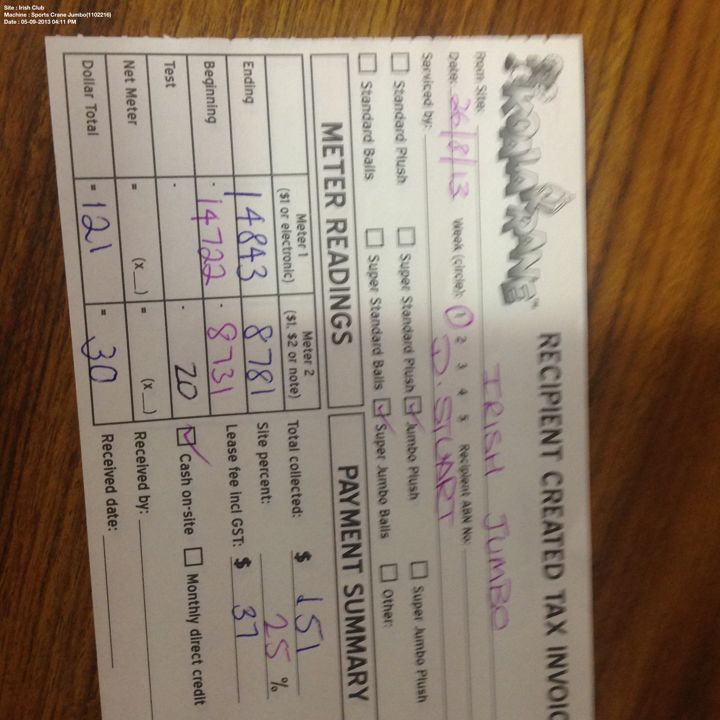 Site : Irish Club
Machine : Sports Crane Jumbo(1102216)
Date : 05-09-2013 04:11 PM
KOALA KRANE™ RECIPIENT CREATED TAX INVOIC
From Site: IRISH JUMBO
Date: 26/8/13 Week (circle): 1 2 3 4 5 Recipient ABN No:
Serviced by: D. STUART
Standard Plush Super Standard Plush Jumbo Plush Super Jumbo Plush
Standard Balls Super Standard Balls Super Jumbo Balls Other:
METER READINGS
Meter 1 ($1 or electronic) Meter 2 ($1, $2 or note)
Ending 14843 8781
Beginning - 14722 - 8731
Test - - 20
Net Meter = (x__) = (x__)
Dollar Total = 121 = 30
PAYMENT SUMMARY
Total collected: $ 151
Site percent: 25 %
Lease fee incl GST: $ 37
Cash on-site Monthly direct credit
Received by:
Received date: